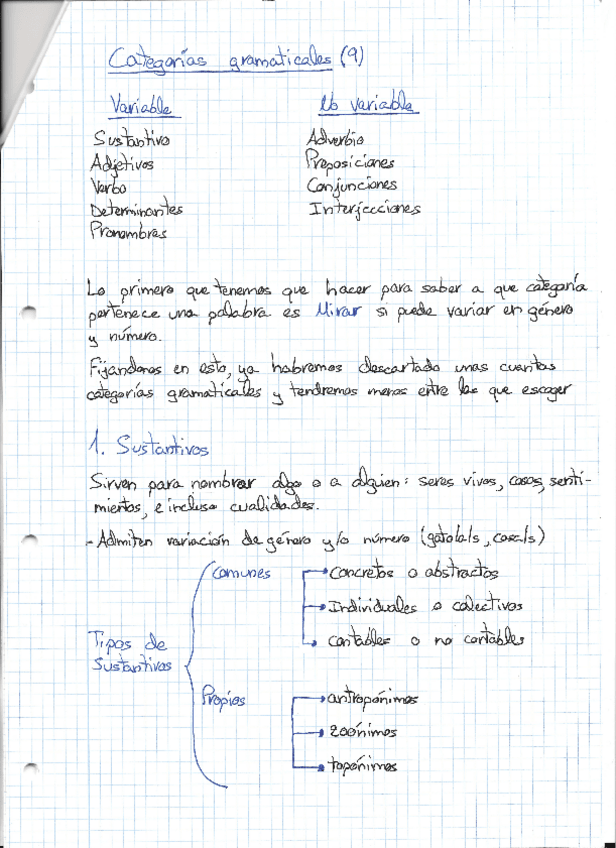 Categorías gramaticales (9)
Variable
No variable
Sustantivo
Adverbio
Adjetivos
Preposiciones
Verbo
Conjunciones
Determinantes
Interjecciones
Pronombres
Lo primero que tenemos que hacer para saber a que categoría
pertenece una palabra es Mirar si puede variar en género
y número.
Fijandonos en esto, ya habremos descartado unas cuantas
categorías gramaticales y tendremos menos entre las que escoger
1. Sustantivos
Sirven para nombrar algo o a alguien: seres vivos, cosas, senti-
mientos, e incluso cualidades.
- Admiten variación de género y/o número (gato/a/s, casa/s)
Comunes
Concretos o abstractos
Individuales o colectivos
contables o no contables
Tipos de
Sustantivos
Propios
antropónimos
zoónimos
topónimos